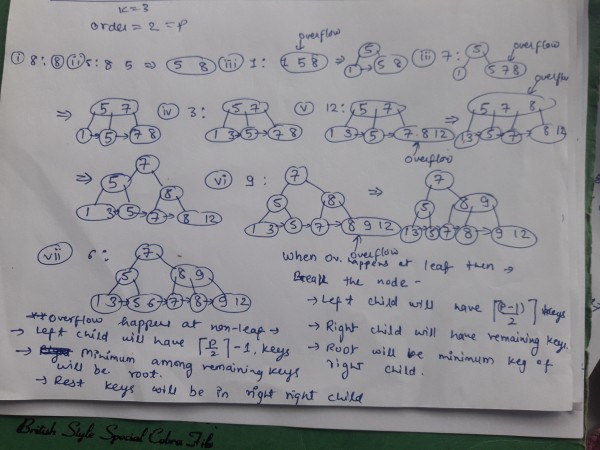 K=3
order = 2 = P
overflow
(i) 8: 8 (ii) 5: 8 5 ⇒ 5 8 (iii) 1: 1 5 8 ⇒ 5 1 → 5 8 (iii) 7: 5 1 5 7 8 overflow
overflow
⇒ 5 7 1 → 5 → 7 8 (iv) 3: 5 7 1 3 → 5 → 7 8 (v) 12: 5 7 1 3 → 5 → 7 8 12 ⇒ 5 7 8 1 3 → 5 → 7 → 8 12
overflow
⇒ 7 5 8 1 3 → 5 → 7 → 8 12 (vi) 9: 7 5 8 1 3 → 5 → 7 → 8 9 12 ⇒ 7 5 8 9 1 3 5 7 8 → 9 12
overflow
(vii) 6: 7 5 8 9 1 3 → 5 6 → 7 → 8 → 9 12
When ov. happens at leaf then →
Break the node -
→ Left child will have ⌈(P-1)/2⌉ keys
→ Right child will have remaining keys.
→ Root will be minimum key of
right child.
** Overflow happens at non-leaf →
→ Left child will have ⌈P/2⌉ - 1, keys
→ Minimum among remaining keys
will be root.
→ Rest keys will be in right right child
British Style Special Cobra File